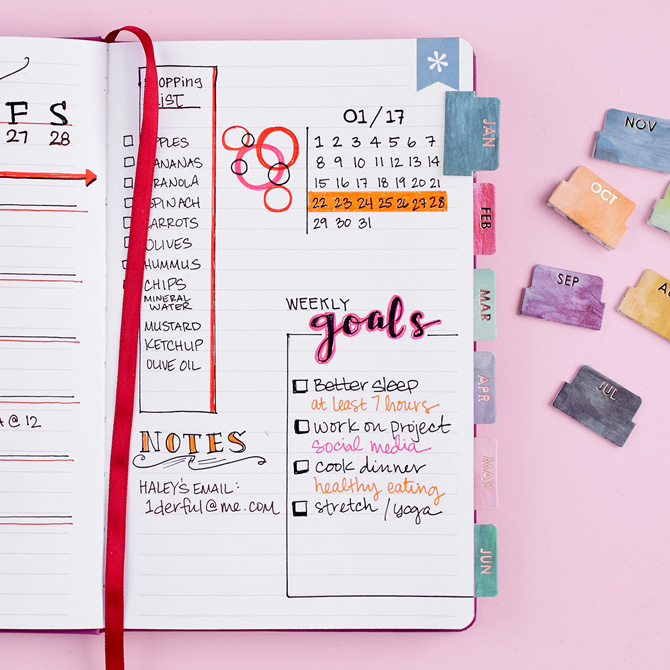 F S
27 28
@ 12
LIST
GRANOLA
SPINACH
CARROTS
OLIVES
HUMMUS
CHIPS
MINERAL
WATER
MUSTARD
KETCHUP
OLIVE OIL
NOTES
HALEY'S EMAIL:
1derful@me.com
01/17
1 2 3 4 5 6 7
8 9 10 11 12 13 14
15 16 17 18 19 20 21
22 23 24 25 26 27 28
29 30 31
WEEKLY
goals
Better sleep
at least 7 hours
work on project
social media
cook dinner
healthy eating
stretch / yoga
JAN
FEB
MAR
APR
MAY
JUN
NOV
OCT
SEP
JUL